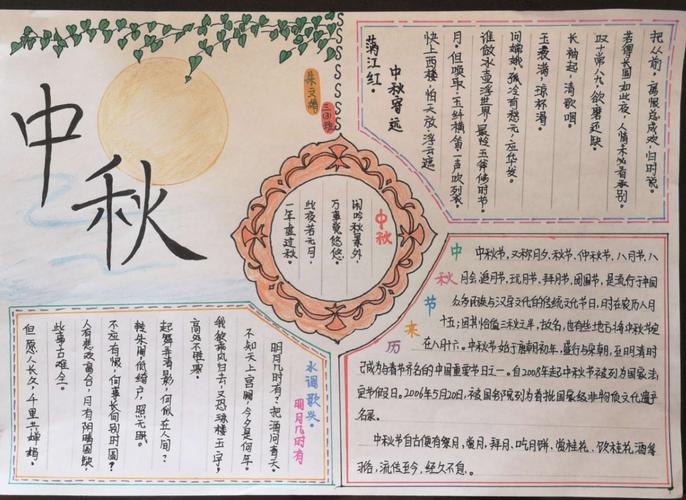 中秋
三(3)班
满江红。
中秋寄远
快上西楼，怕天放浮云遮
月。但唤取，玉纤横笛一声吹裂。
谁做冰壶浮世界，最怜玉斧修时节。
问嫦娥，孤冷有愁无，应华发。
玉液满，凉杯滑。
长袖起，清歌咽。
叹十常八九，欲磨还缺。
若得长圆如此夜，人情未必看承别。
把从前，离恨总成欢，归时说。
中秋
闲吟秋景外，
万事觉悠悠。
此夜若无月，
一年虚过秋。
水调歌头。
明月几时有
明月几时有？把酒问青天。
不知天上宫阙，今夕是何年。
我欲乘风归去，又恐琼楼玉宇，
高处不胜寒。
起舞弄清影，何似在人间？
转朱阁，低绮户，照无眠。
不应有恨，何事长向别时圆？
人有悲欢离合，月有阴晴圆缺，
此事古难全。
但愿人长久，千里共婵娟。
中秋节来历
中秋节，又称月夕、秋节、仲秋节、八月节、八
月会、追月节、玩月节、拜月节、团圆节，是流行于中国
众多民族与汉字文化的传统文化节日，时在农历八月
十五；因其恰值三秋之半，故名，也有些地方将中秋节定
在八月十六。中秋节始于唐朝初年，盛行于宋朝，至明清时
已成为与春节齐名的中国重要节日之一。自2008年起中秋节被列为国家法
定节假日。2006年5月20日，被国务院列为首批国家级非物质文化遗产
名录。
中秋节自古便有祭月、赏月、拜月、吃月饼、赏桂花、饮桂花酒等
习俗，流传至今，经久不息。